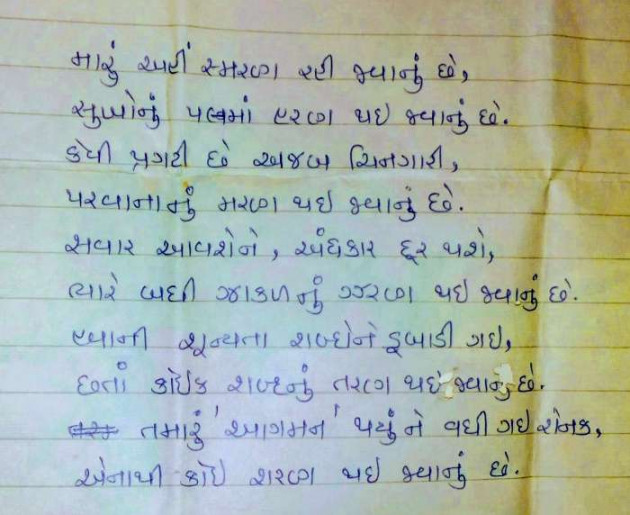 મારું અહીં સ્મરણ રહી જવાનું છે,
સુખોનું પલમાં હરણ થઇ જવાનું છે.
કેવી પ્રગટી છે અજબ ચિનગારી,
પરવાનાનું મરણ થઇ જવાનું છે.
સવાર આવશેને, અંધકાર દૂર થશે,
ત્યારે બધી ઝાકળનું ઝરણ થઇ જવાનું છે.
હવાની શૂન્યતા શબ્દોને ડૂબાડી ગઇ,
છતાં કોઇક શબ્દનું તરણ થઇ જવાનું છે.
તમારું 'આગમન' થયું ને વધી ગઇ રોનક,
એનાથી કોઇ શરણ થઇ જવાનું છે.